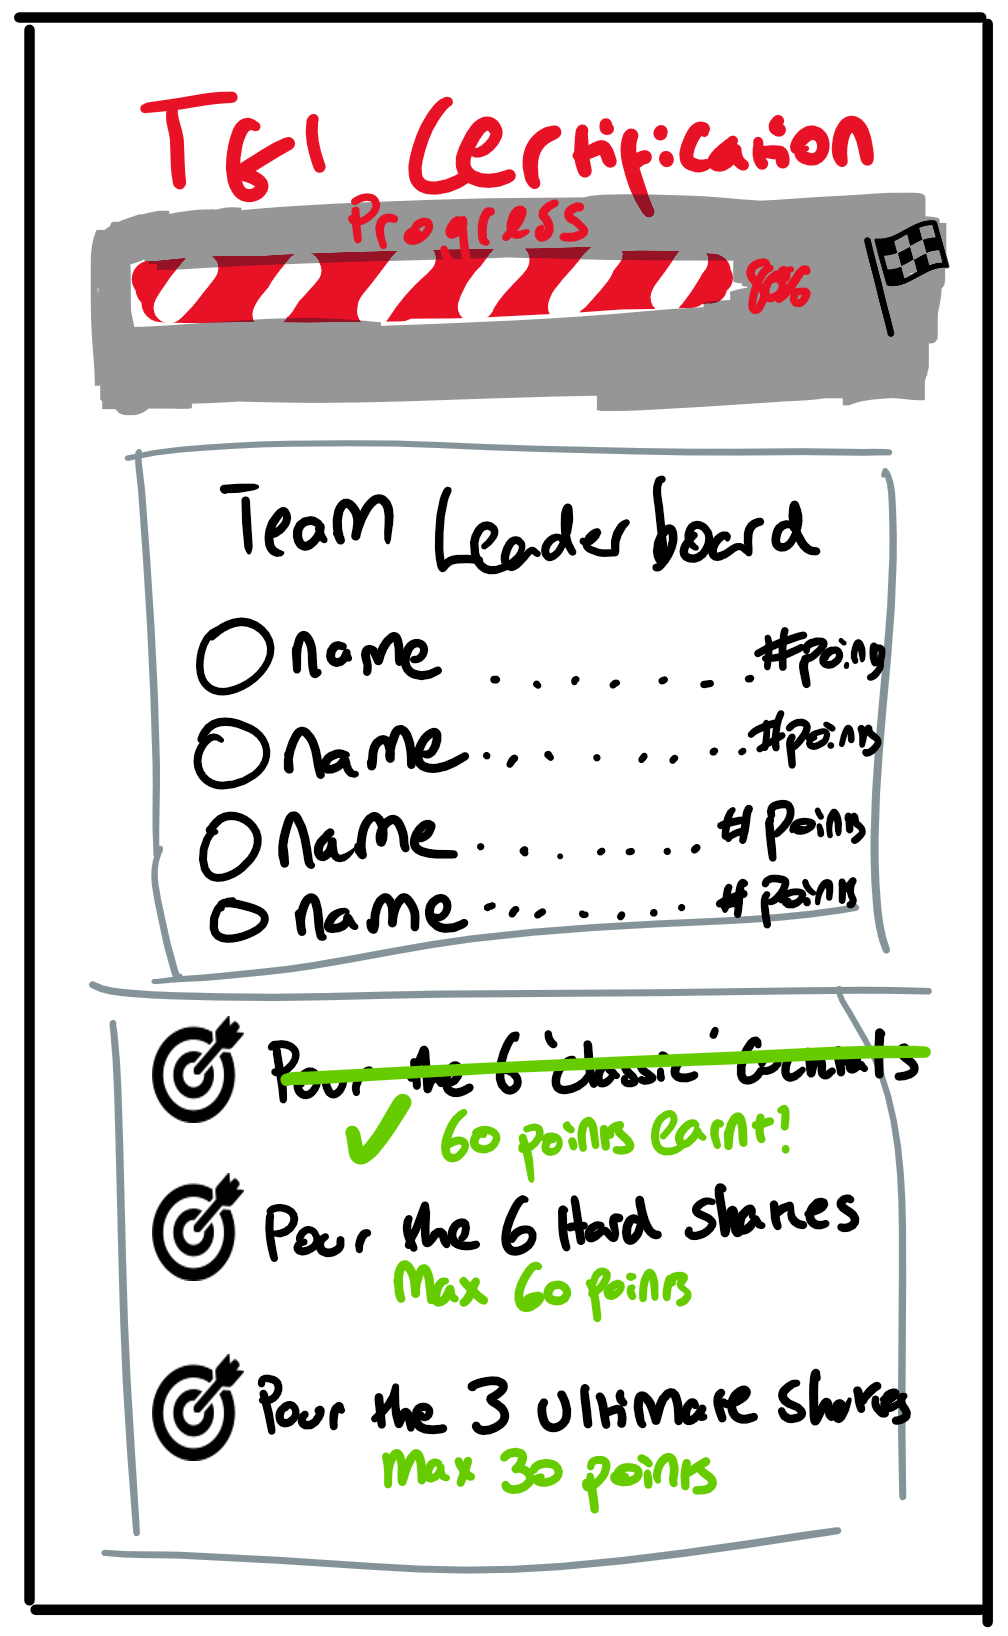 TGI Certification
Progress
Team Leaderboard
name . . . . . . . #points
name . . . . . . . . #points
name . . . . . . . # points
name . . . . . . . # points
Pour the 6 'classic' Cocktails
60 points earnt!
Pour the 6 Hard Shakes
Max 60 points
Pour the 3 Ultimate Shakes
Max 30 points